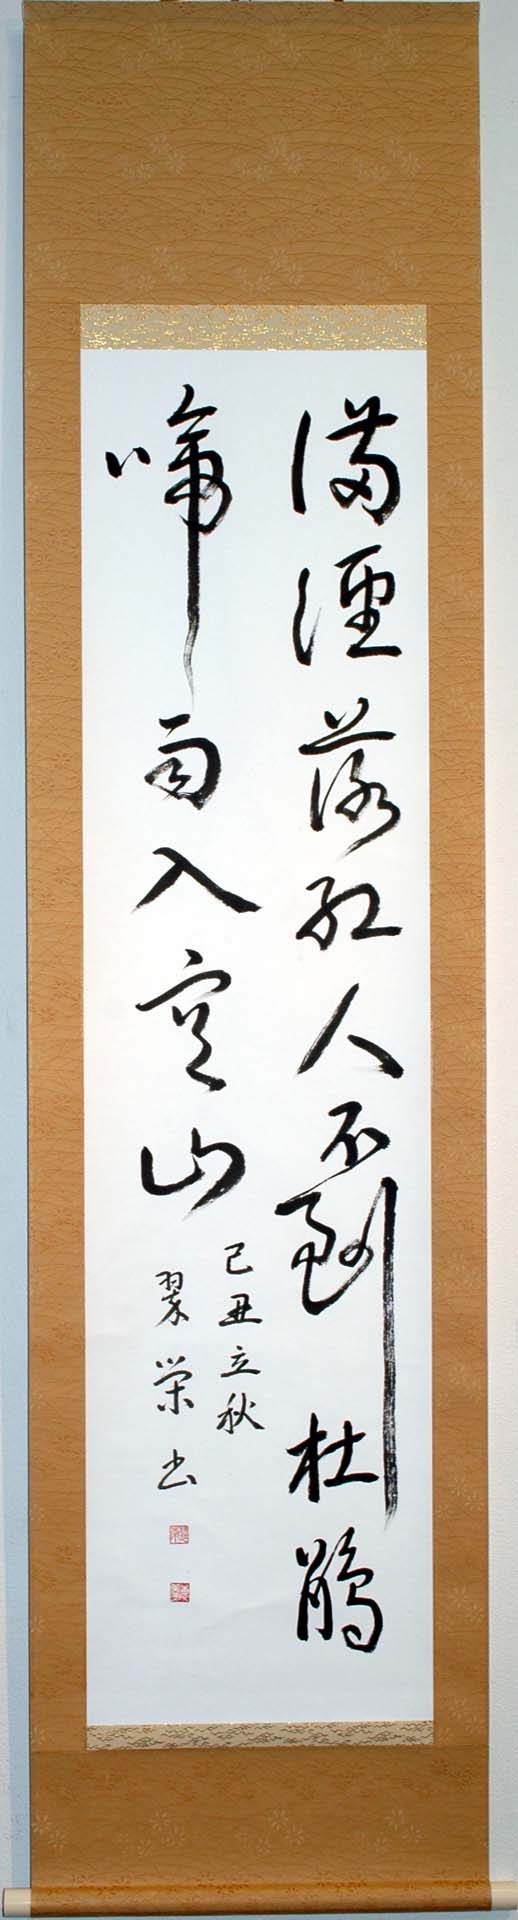 満徑落紅人不到杜鵑
啼雨入空山
己丑立秋
翠栄书